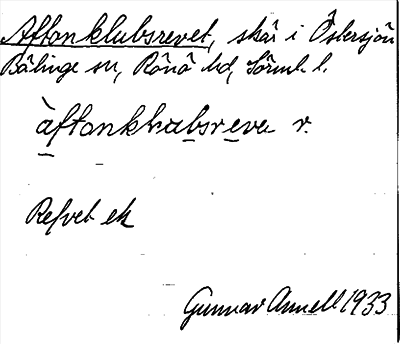 Aftonklubsrevet, skär i Östersjön
Bälinge sn, Rönö hd, Sörml. l.
àftonklubsreve r.
Refvet ek
Gunnar Annell 1933